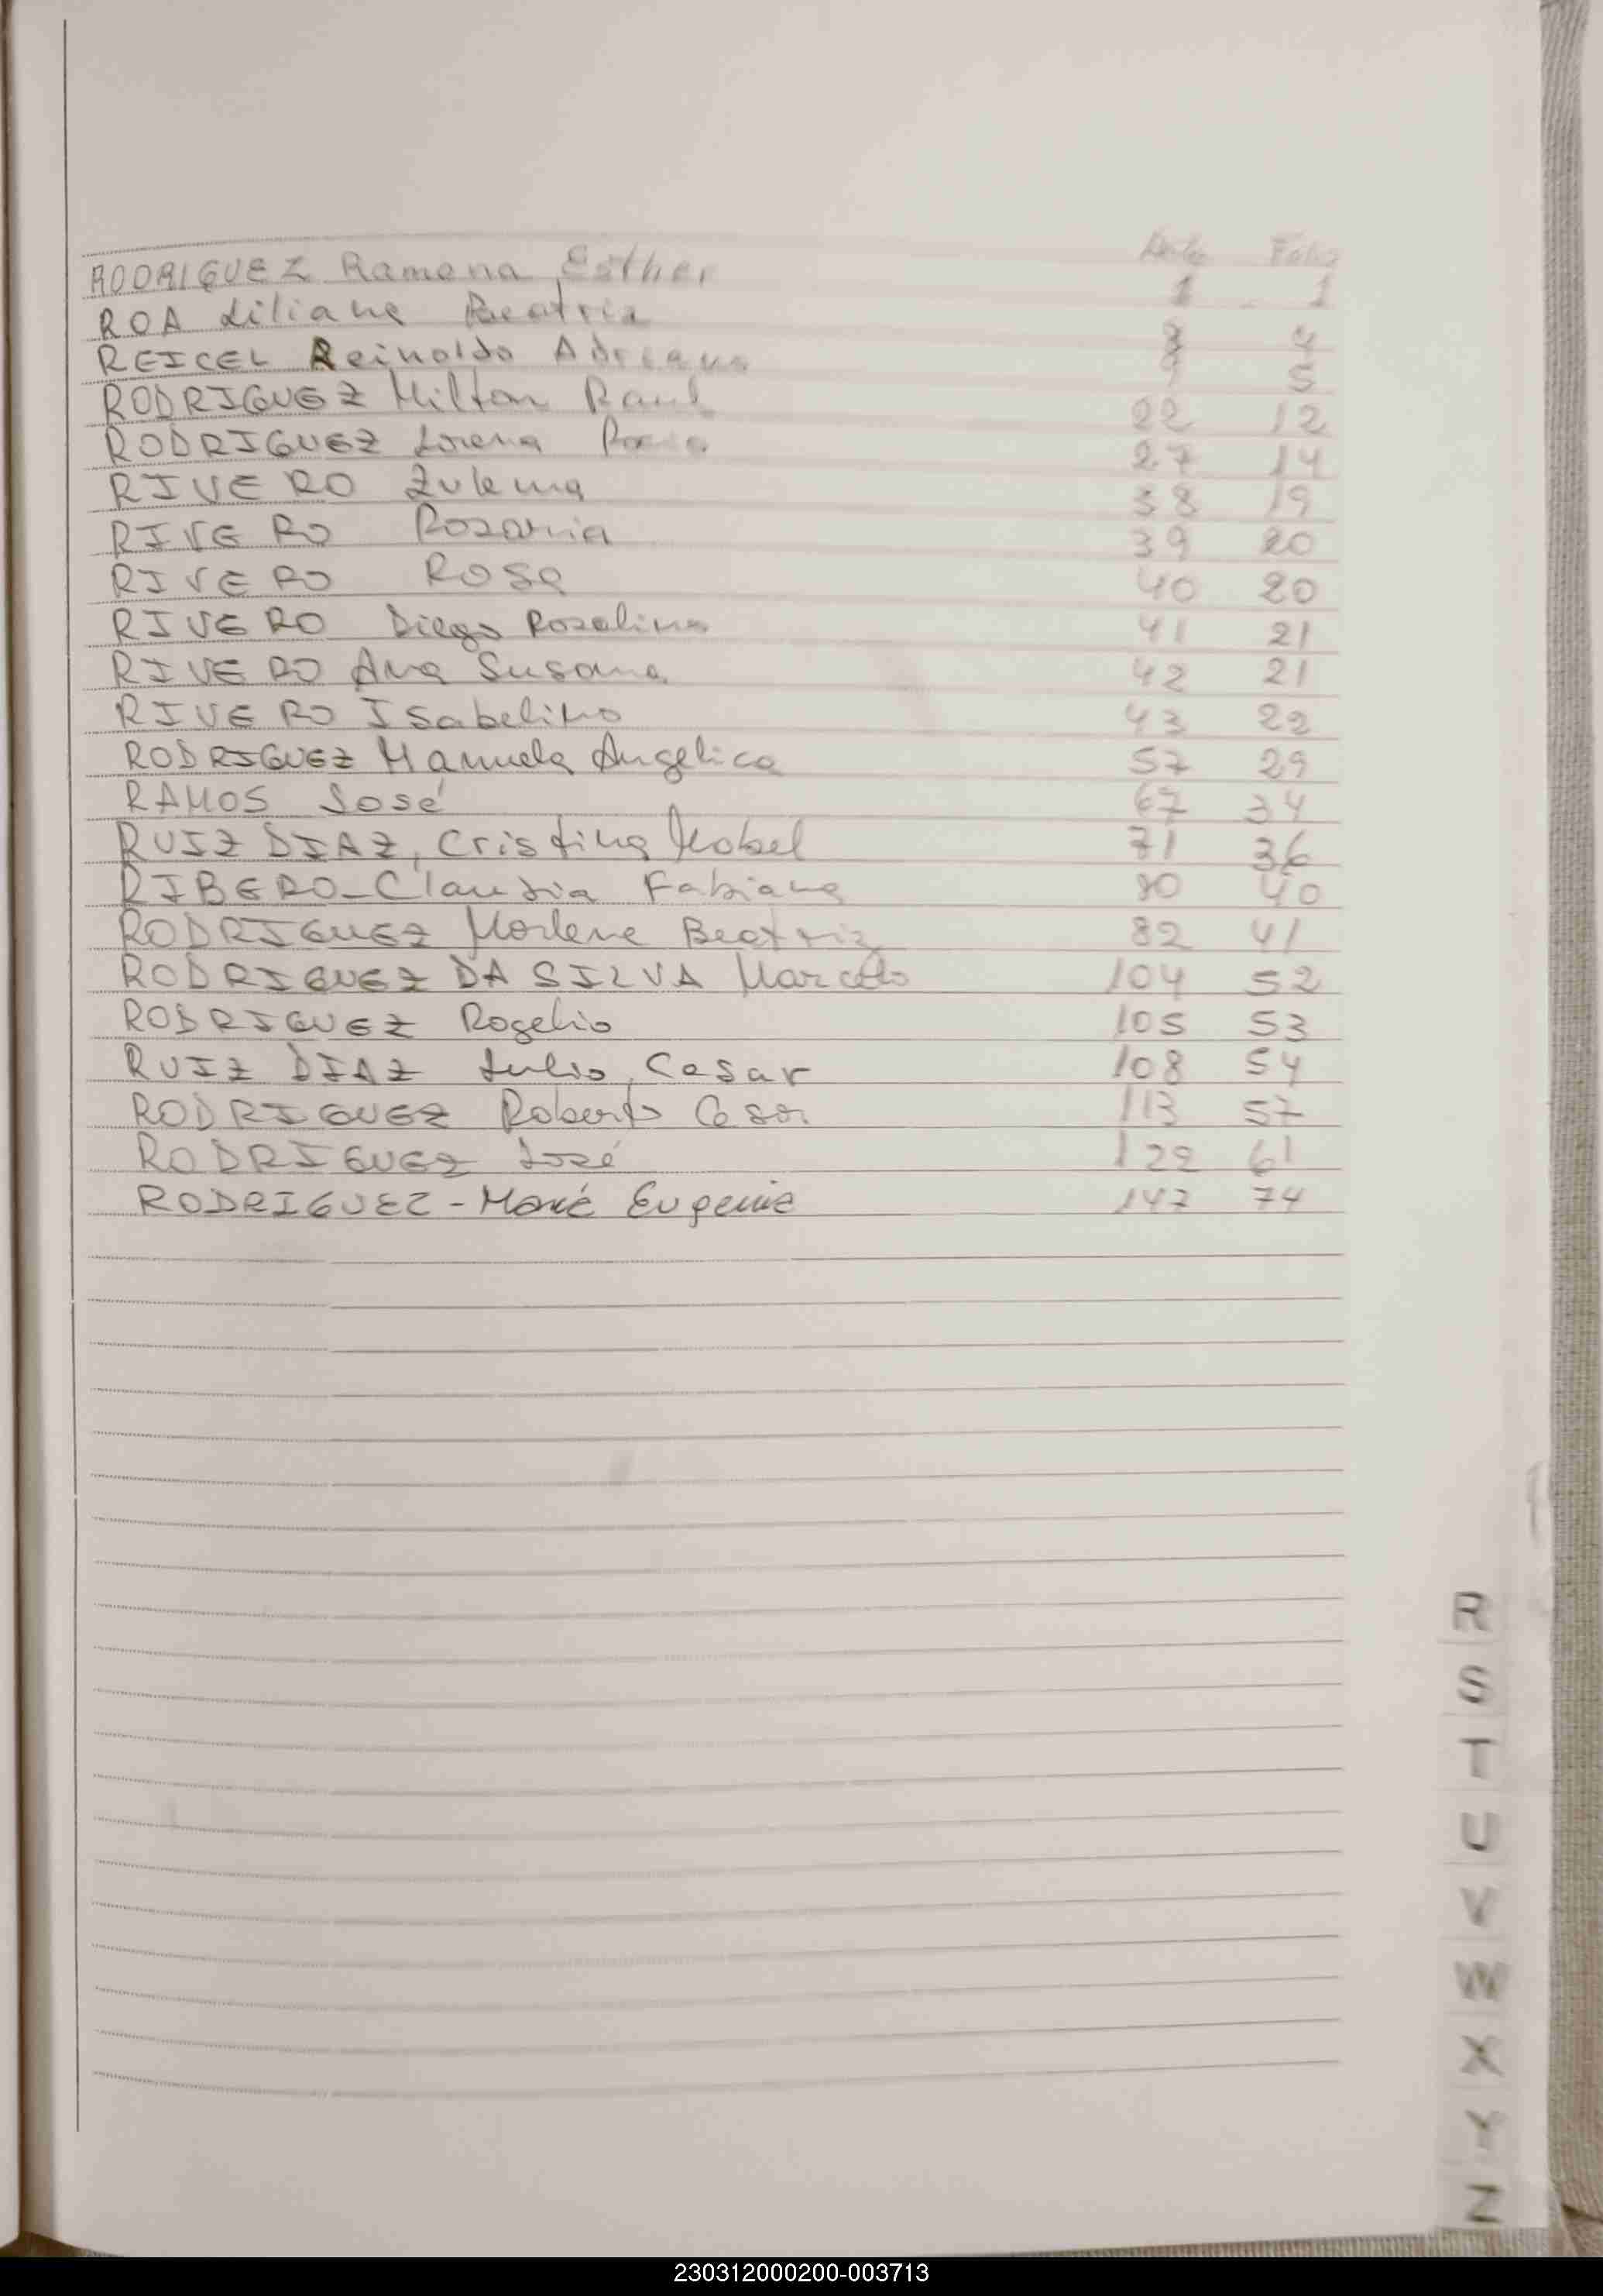 Acta Folio
RODRIGUEZ Ramona Esther 1 1
ROA Liliana Beatriz 4
REICEL Reinaldo Adriano 5
RODRIGUEZ Milton Raul 22 12
RODRIGUEZ Lorena 27 14
RIVERO Zulema 38 19
RIVERO Rosaria 39 20
RIVERO Rosa 40 20
RIVERO Diego Rosalino 41 21
RIVERO Ana Susana 42 21
RIVERO Isabelino 43 22
RODRIGUEZ Manuela Angélica 57 29
RAMOS José 67 34
RUIZ DIAZ, Cristina Mabel 71 36
RIBERO-Claudia Fabiana 80 40
RODRIGUEZ Marlene Beatriz 82 41
RODRIGUEZ DA SILVA Marcelo 104 52
RODRIGUEZ Rogelio 105 53
RUIZ DIAZ Julio Cesar 108 54
RODRIGUEZ Roberto Cesar 113 57
RODRIGUEZ José 122 61
RODRIGUEZ - María Eugenia 147 74
R
S
T
U
V
W
X
Y
Z
230312000200-003713